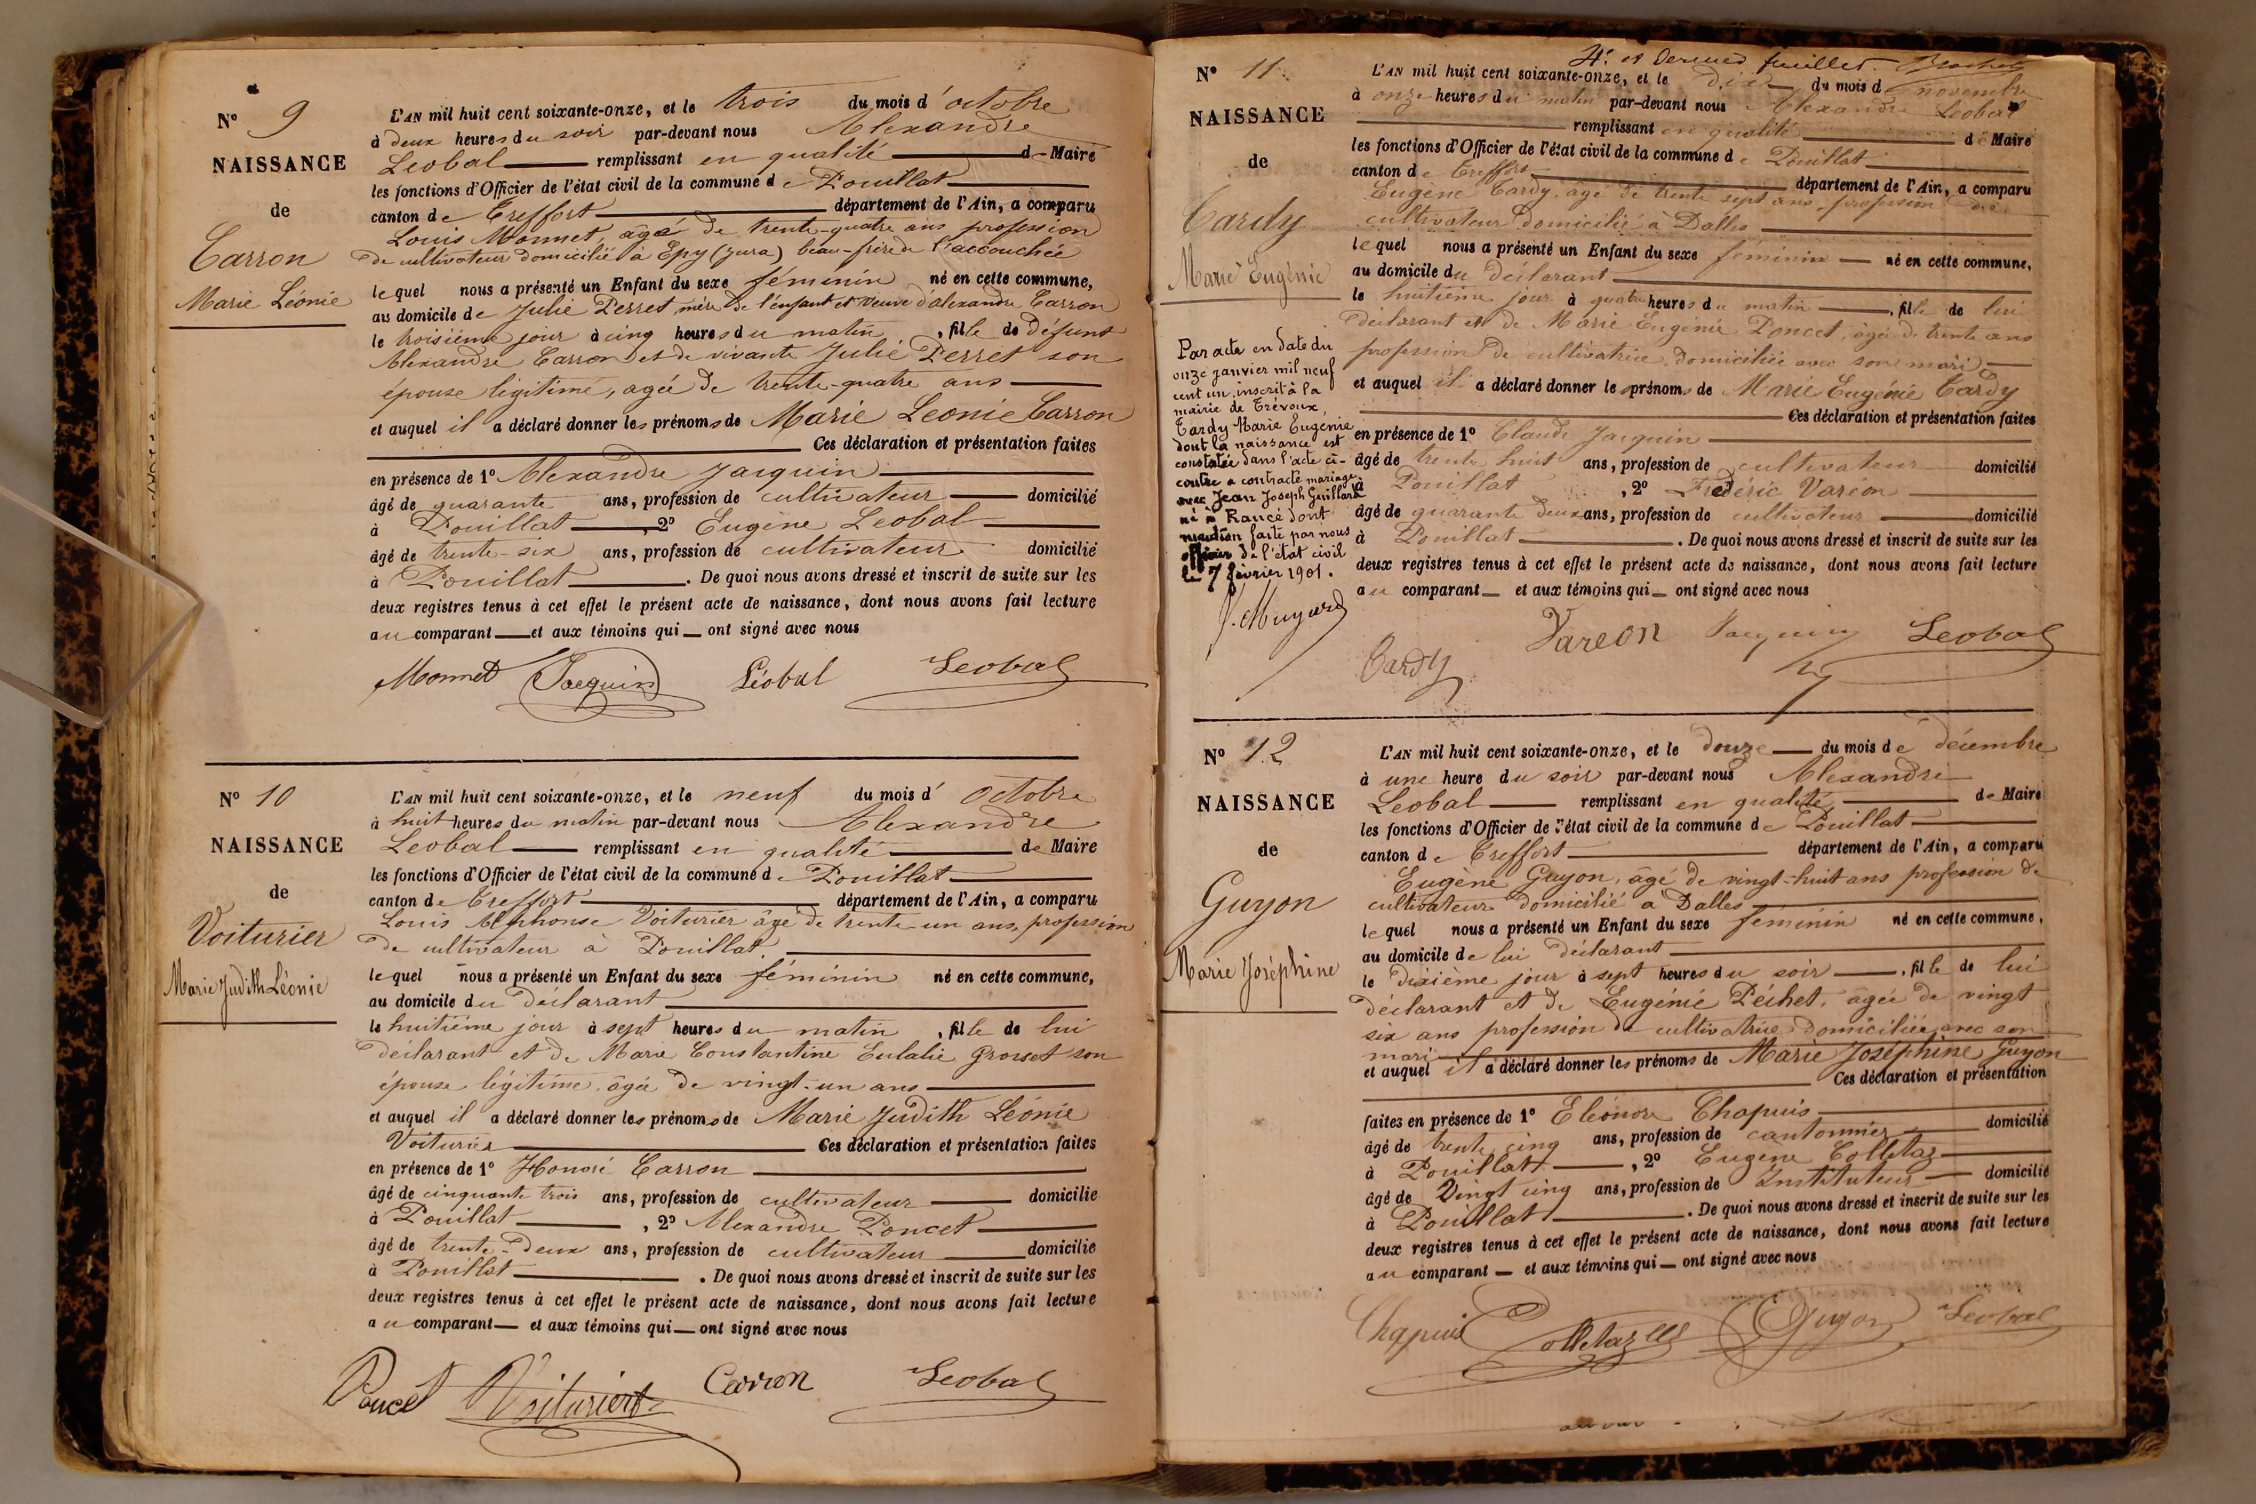 N° 9
NAISSANCE
de
Carron
Marie Léonie
L'AN mil huit cent soixante-onze, et le trois du mois d'octobre
à deux heures du soir par-devant nous Alexandre
Leobal remplissant en qualité de Maire
les fonctions d'Officier de l'état civil de la commune de Pouillat
canton de Treffort département de l'Ain, a comparu
Louis Monnet, âgé de trente-quatre ans profession
de cultivateur domicilié à Epy (Jura) beau-frère de l'accouchée
lequel nous a présenté un Enfant du sexe féminin né en cette commune,
au domicile de Julie Perret, mère de l'enfant et veuve d'alexandre Carron
le troisième jour à cinq heures du matin, fille de défunt
Alexandre Carron et de vivante Julie Perret son
épouse légitime, agée de trente-quatre ans
et auquel il a déclaré donner les prénoms de Marie Leonie Carron
Ces déclaration et présentation faites
en présence de 1° Alexandre Jacquin
âgé de quarante ans, profession de cultivateur domicilié
à Pouillat, 2° Eugène Leobal
âgé de trente-six ans, profession de cultivateur domicilié
à Pouillat. De quoi nous avons dressé et inscrit de suite sur les
deux registres tenus à cet effet le présent acte de naissance, dont nous avons fait lecture
au comparant et aux témoins qui ont signé avec nous
Monnet Jacquin Léobal Leobal
N° 10
NAISSANCE
de
Voiturier
Marie Judith Léonie
L'AN mil huit cent soixante-onze, et le neuf du mois d'Octobre
à huit heures du matin par-devant nous Alexandre
Leobal remplissant en qualité de Maire
les fonctions d'Officier de l'état civil de la commune de Pouillat
canton de Treffort département de l'Ain, a comparu
Louis Alphonse Voiturier âgé de trente-un ans, profession
de cultivateur à Pouillat.
lequel nous a présenté un Enfant du sexe féminin né en cette commune,
au domicile du déclarant
le huitième jour à sept heures du matin, fille de lui
déclarant et de Marie Constantine Eulalie Grosset son
épouse légitime, âgée de vingt-un ans
et auquel il a déclaré donner les prénoms de Marie Judith Léonie
Voiturier Ces déclaration et présentation faites
en présence de 1° Honoré Carron
âgé de cinquante trois ans, profession de cultivateur domicilié
à Pouillat, 2° Alexandre Poncet
âgé de trente-deux ans, profession de cultivateur domicilié
à Pouillat. De quoi nous avons dressé et inscrit de suite sur les
deux registres tenus à cet effet le présent acte de naissance, dont nous avons fait lecture
au comparant et aux témoins qui ont signé avec nous
Poncet Voiturier Carron Leobal
4e et dernier feuillet
N° 11
NAISSANCE
de
Tardy
Marie Eugénie
Par acte en date du
onze janvier mil neuf
cent un, inscrit à la
mairie de Trévoux,
Tardy Marie Eugénie
dont la naissance est
constatée dans l'acte ci-
contre a contracté mariage
avec Jean Joseph Guillard
né à Rancé dont
mention faite par nous
officier de l'état civil
le 7 février 1901.
L'AN mil huit cent soixante-onze, et le dix du mois de novembre
à onze heures du matin par-devant nous Alexandre Leobal
remplissant en qualité de Maire
les fonctions d'Officier de l'état civil de la commune de Pouillat
canton de Treffort département de l'Ain, a comparu
Eugène Tardy, âgé de trente sept ans, profession de
cultivateur domicilié à Dalles
lequel nous a présenté un Enfant du sexe féminin né en cette commune,
au domicile du déclarant
le huitième jour à quatre heures du matin, fille de lui
déclarant et de Marie Eugénie Poncet, âgée de trente ans
profession de cultivatrice, domiciliée avec son mari
et auquel il a déclaré donner les prénoms de Marie Eugénie Tardy
Ces déclaration et présentation faites
en présence de 1° Claude Jacquin
âgé de trente huit ans, profession de cultivateur domicilié
à Pouillat, 2° Frédéric Varéon
âgé de quarante deux ans, profession de cultivateur domicilié
à Pouillat. De quoi nous avons dressé et inscrit de suite sur les
deux registres tenus à cet effet le présent acte de naissance, dont nous avons fait lecture
au comparant et aux témoins qui ont signé avec nous
Tardy Vareon Jacquin Leobal
N° 12
NAISSANCE
de
Guyon
Marie Joséphine
L'AN mil huit cent soixante-onze, et le douze du mois de décembre
à une heure du soir par-devant nous Alexandre
Leobal remplissant en qualité de Maire
les fonctions d'Officier de l'état civil de la commune de Pouillat
canton de Treffort département de l'Ain, a comparu
Eugène Guyon, âgé de vingt-huit ans profession de
cultivateur domicilié à Dalles
lequel nous a présenté un Enfant du sexe féminin né en cette commune,
au domicile de lui déclarant
le dixième jour à sept heures du soir, fille de lui
déclarant et de Eugénie Péchet, âgée de vingt
six ans profession de cultivatrice, domiciliée avec son
mari
et auquel il a déclaré donner les prénoms de Marie Joséphine Guyon
Ces déclaration et présentation
faites en présence de 1° Eléonore Chapuis
âgé de trente cinq ans, profession de cantonnier domicilié
à Pouillat, 2° Eugène Colletaz
âgé de Vingt cinq ans, profession de Instituteur domicilié
à Pouillat. De quoi nous avons dressé et inscrit de suite sur les
deux registres tenus à cet effet le présent acte de naissance, dont nous avons fait lecture
au comparant et aux témoins qui ont signé avec nous
Chapuis Colletaz Guyon Leobal